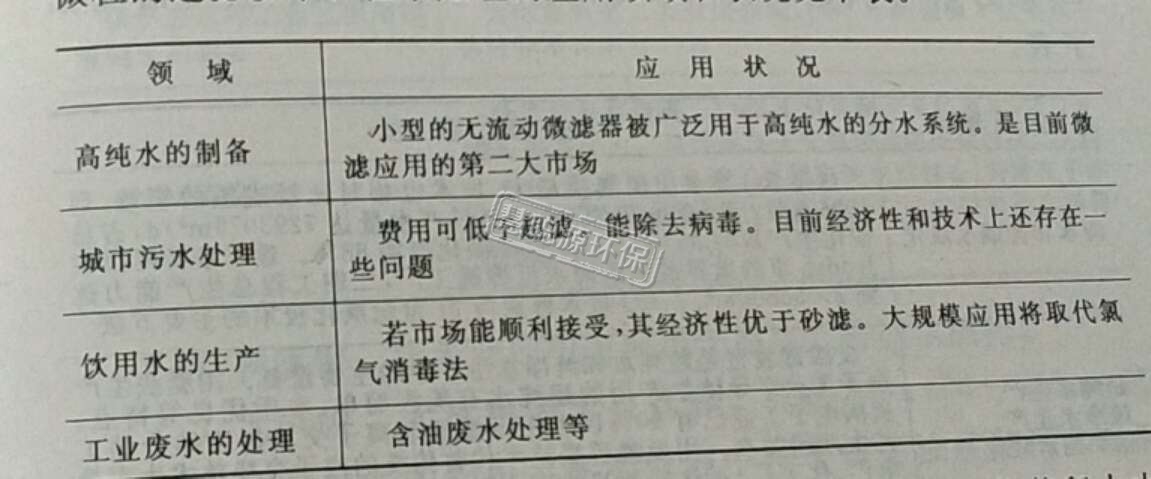 领 域 应 用 状 况
高纯水的制备
小型的无流动微滤器被广泛用于高纯水的分水系统。是目前微
滤应用的第二大市场
城市污水处理
费用可低于超滤。能除去病毒。目前经济性和技术上还存在一
些问题
饮用水的生产
若市场能顺利接受,其经济性优于砂滤。大规模应用将取代氯
气消毒法
工业废水的处理 含油废水处理等
源环保